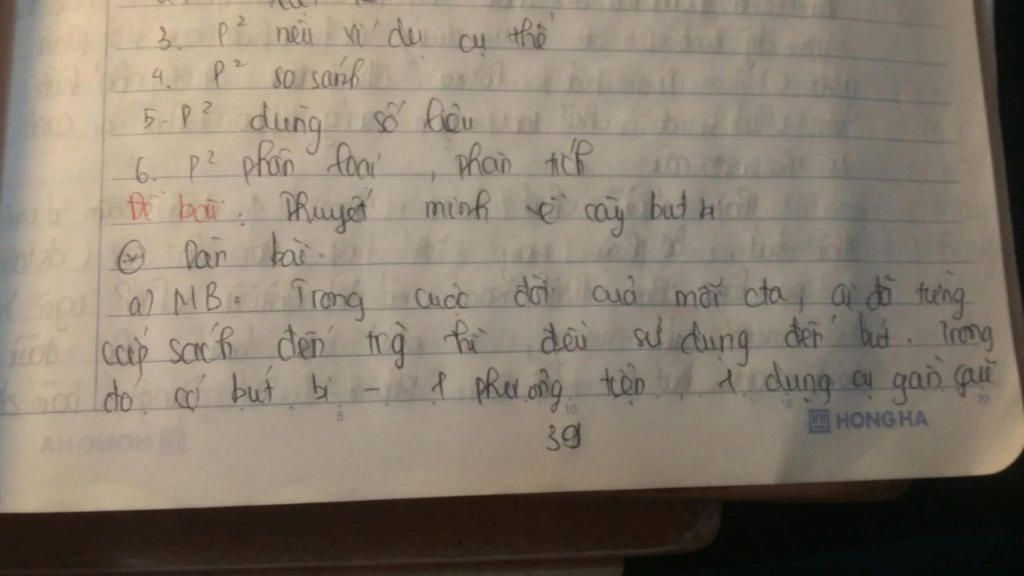 3. P² nêu ví dụ cụ thể
4. P² so sánh
5. P² dùng số liệu
6. P² phân loại, phân tích
Đề bài: Thuyết minh về cây bút bi
Dàn bài.
a) MB: Trong cuộc đời của mỗi cta, ai đã từng
cắp sách đến trg thì đều sử dụng đến bút. Trong
đó có bút bi - 1 phương tiện, 1 dụng cụ gần gũi
5 10 15 20
39
HONG HA